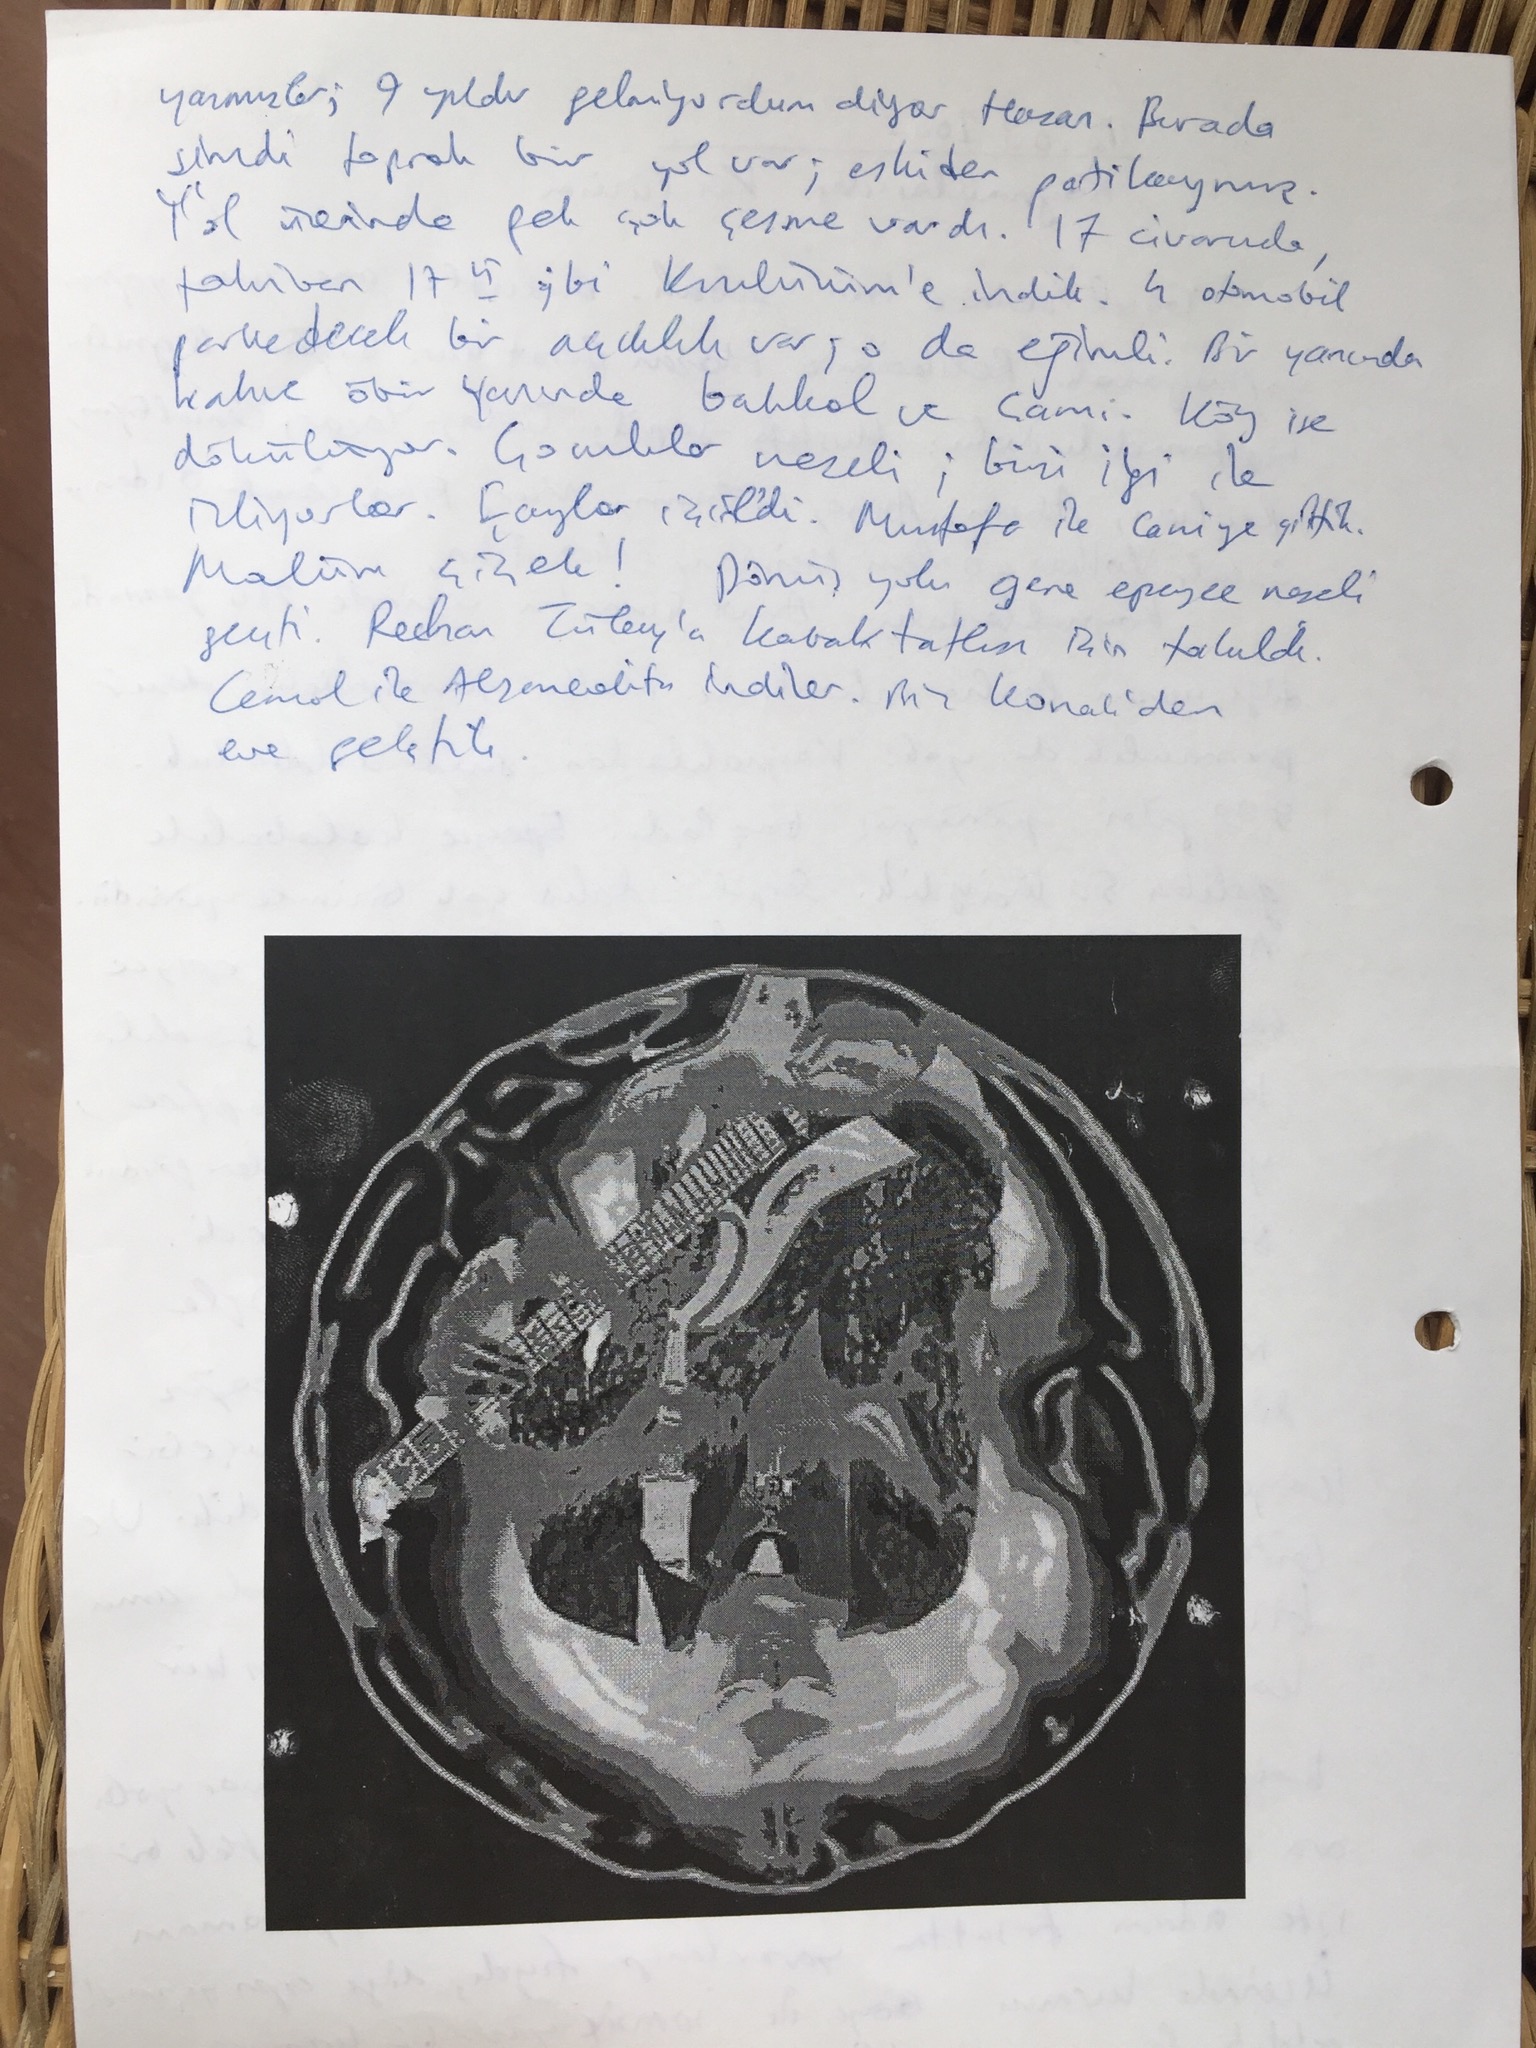 yazmışlar; 9 yıldır gelmiyordum diyor Hasan. Burada
şimdi toprak bir yol var; eskiden patikaymış.
Yol üzerinde pek çok çeşme vardı. 17 civarında,
takriben 17 15 gibi indik. 4 otomobil
parkedecek bir açıklık var; o da eğimli. Bir yanında
kahve öbür yanında bakkal ve cami. Köy ise
dökülüyor. Çocuklar neşeli; bizi ilgi ile
izliyorlar. Çaylar içildi. Mustafa ile camiye gittik.
Malûm çiçek! Dönüş yolu gene epeyce neşeli
geçti. Tülay'a kabak tatlısı için takıldı.
Cemal ile indiler. Biz
eve geçtik.